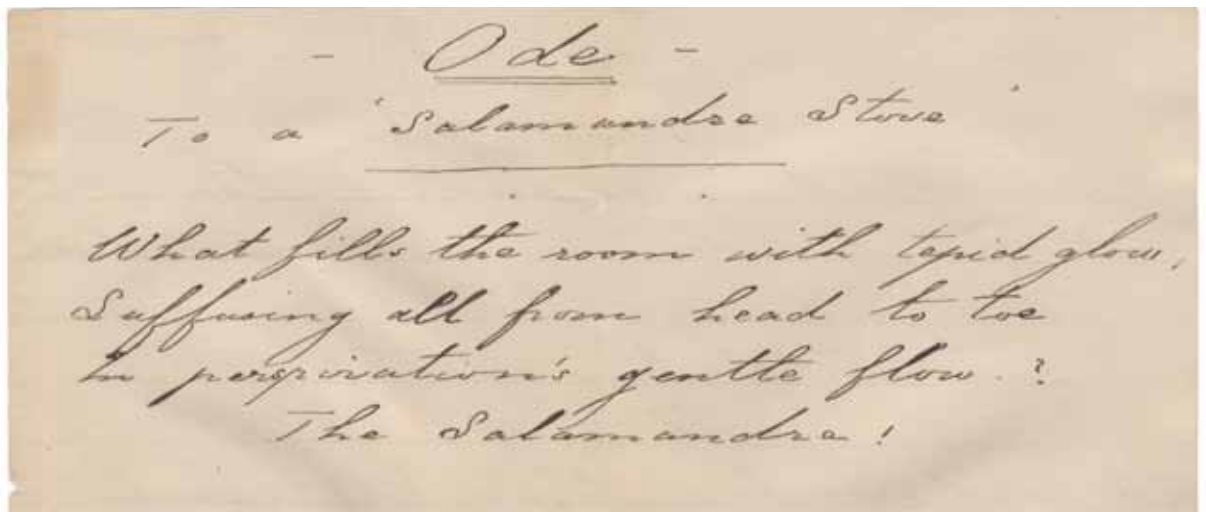 - Ode -
To a 'Salamandre Stove'
What fills the room with tepid glow,
Suffusing all from head to toe
In perspiration's gentle flow. ?
The Salamandre!